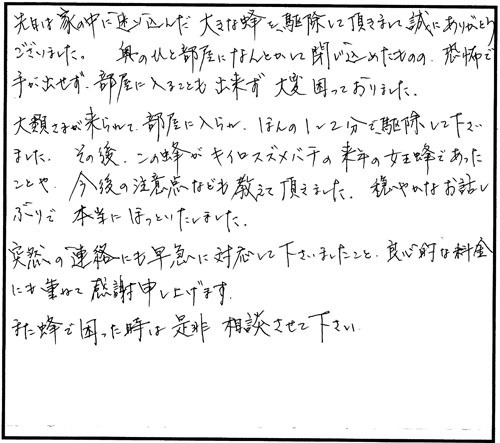 先日は家の中に迷い込んだ 大きな蜂を、駆除して頂きまして誠にありがとう
ございました。 奥のひと部屋になんとかして閉じ込めたものの、恐怖で
手が出せず、部屋に入ることも 出来ず 大変 困っておりました。
大類さまが来られて、部屋に入られ、ほんの1〜2分で駆除して下さい
ました。 その後、この蜂が キイロスズメバチの 来年の女王蜂であった
ことや、今後の注意点なども 教えて 頂きました。 穏やかなお話し
ぶりで 本当に ほっといたしました。
突然の連絡にも早急に対応して下さいましたこと、良心的な料金
にも重ねて 感謝申し上げます。
また蜂で困った時は 是非 相談させて下さい